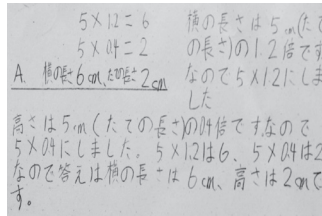 5×1.2=6
5×0.4=2
A. 横の長さ6cm,たての長さ2cm
横の長さは5cm(たて
の長さ)の1.2倍です
なので5×1.2にしま
した
高さは5cm(たての長さ)の0.4倍です。なので
5×0.4にしました。5×1.2は6、5×0.4は2
なので答えは横の長さは6cm、高さは2cmで
す。